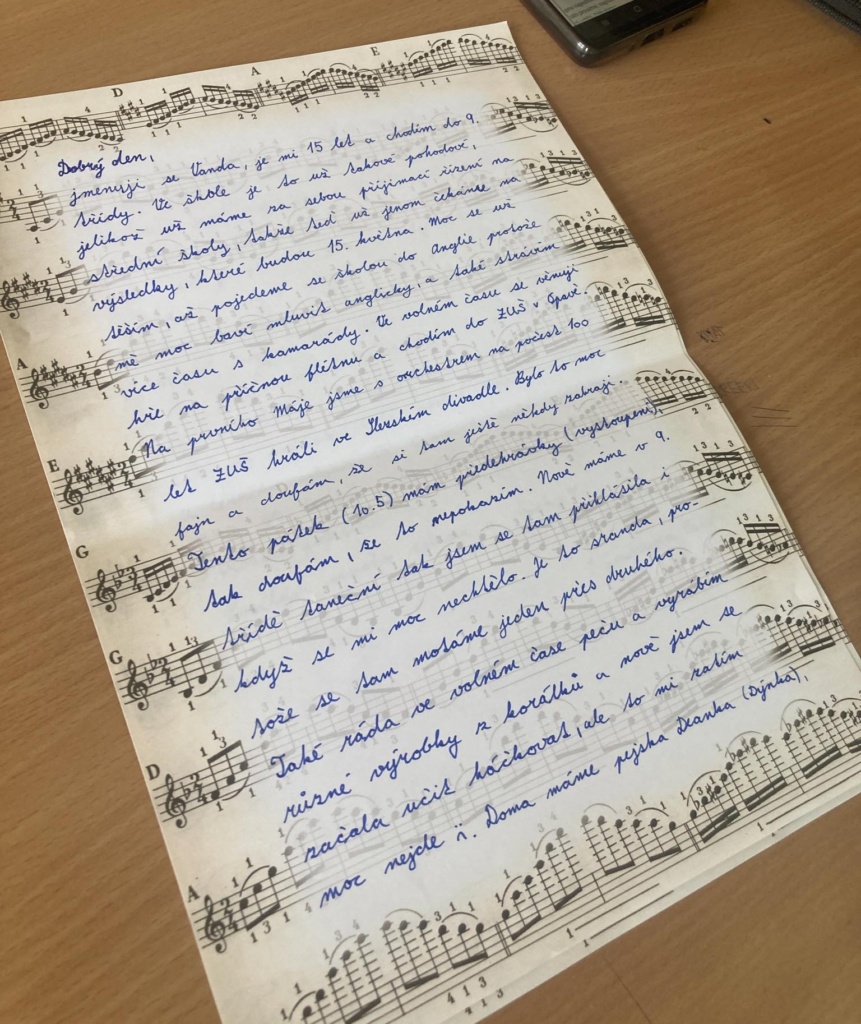 Dobrý den,
jmenuji se Vanda, je mi 15 let a chodím do 9.
třídy. Ve škole je to už takové pohodové,
jelikož už máme za sebou přijímací řízení na
střední školy, takže teď už jenom čekáme na
výsledky, které budou 15. května. Moc se už
těším, až pojedeme se školou do Anglie protože
mě moc baví mluvit anglicky, a také strávím
více času s kamarády. Ve volném času se věnuji
hře na příčnou flétnu a chodím do ZUŠ v Opavě.
Na prvního Máje jsme s orchestrem na počest 100
let ZUŠ hráli ve Slezském divadle. Bylo to moc
fajn a doufám, že si tam ještě někdy zahraji.
Tento pátek (10.5) mám předehrávky (vystoupení),
tak doufám, že to nepokazím. Nově máme v 9.
třídě taneční tak jsem se tam přihlásila i
když se mi moc nechtělo. Je to sranda, pro-
tože se tam motáme jeden přes druhého.
Také ráda ve volném čase peču a vyrábím
různé výrobky z korálků a nově jsem se
začala učit háčkovat, ale to mi zatím
moc nejde :). Doma máme pejska Deanka (Dýnka),
D A E
A
E
G
G
D
A